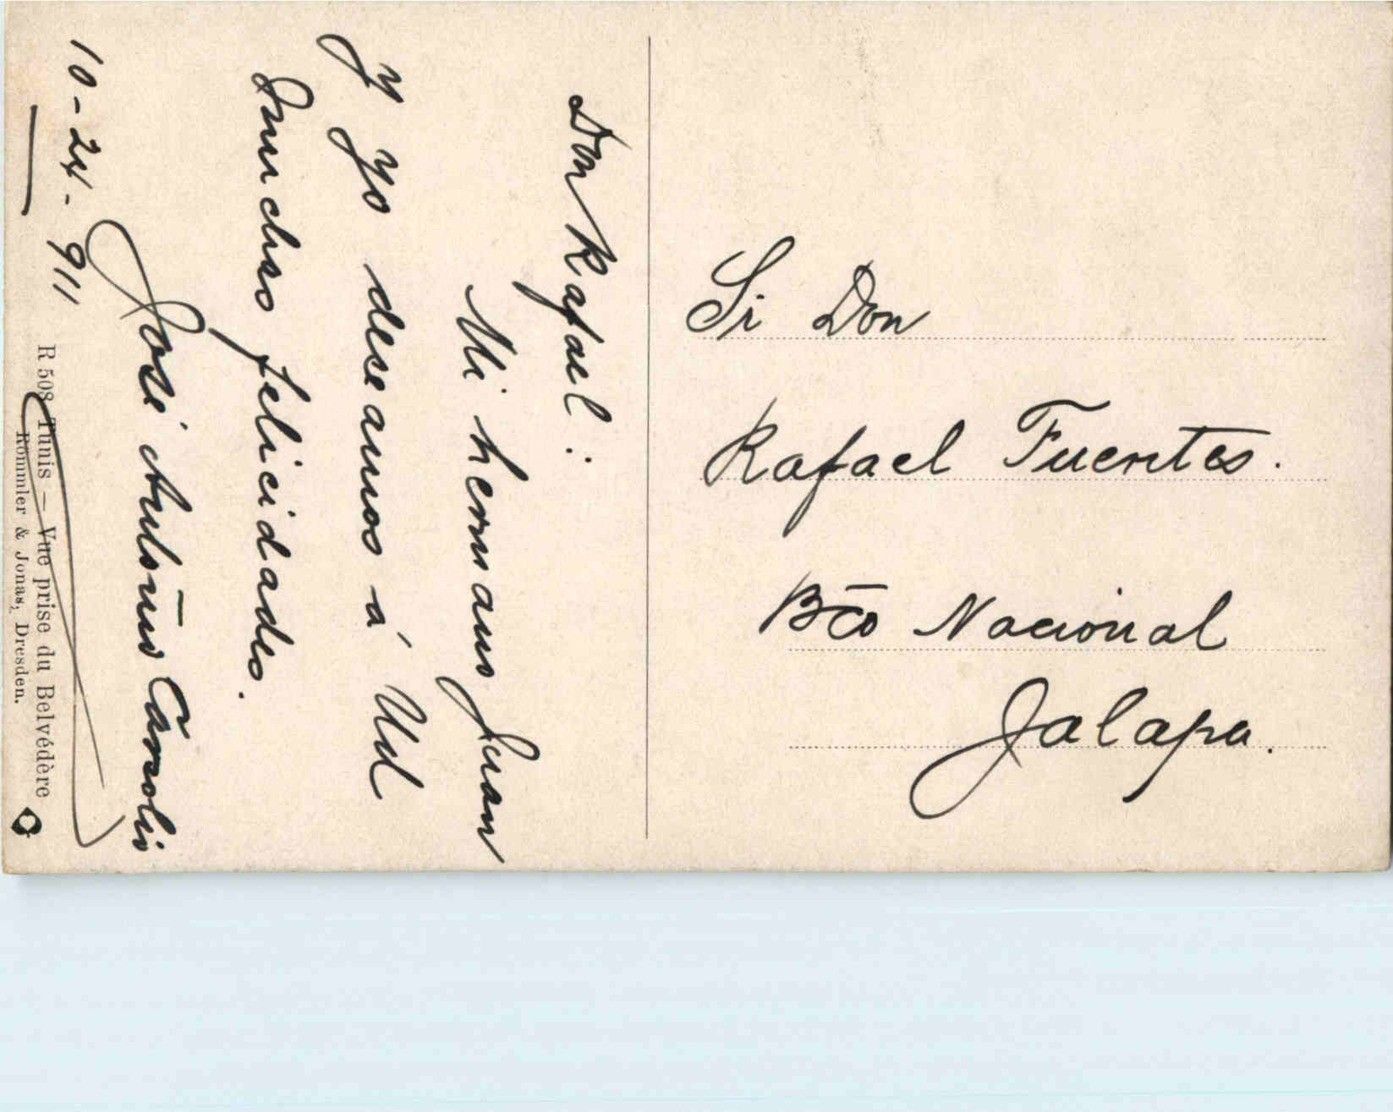 Don Rafael:
Mi hermano Juan
y yo deseamos á Ud
muchas felicidades.
José Antonio
10-24-911
R 508 Tunis — Vue prise du Belvédère
Römmler & Jonas, Dresden.
Sr Don
Rafael Fuentes.
Bco Nacional
Jalapa.